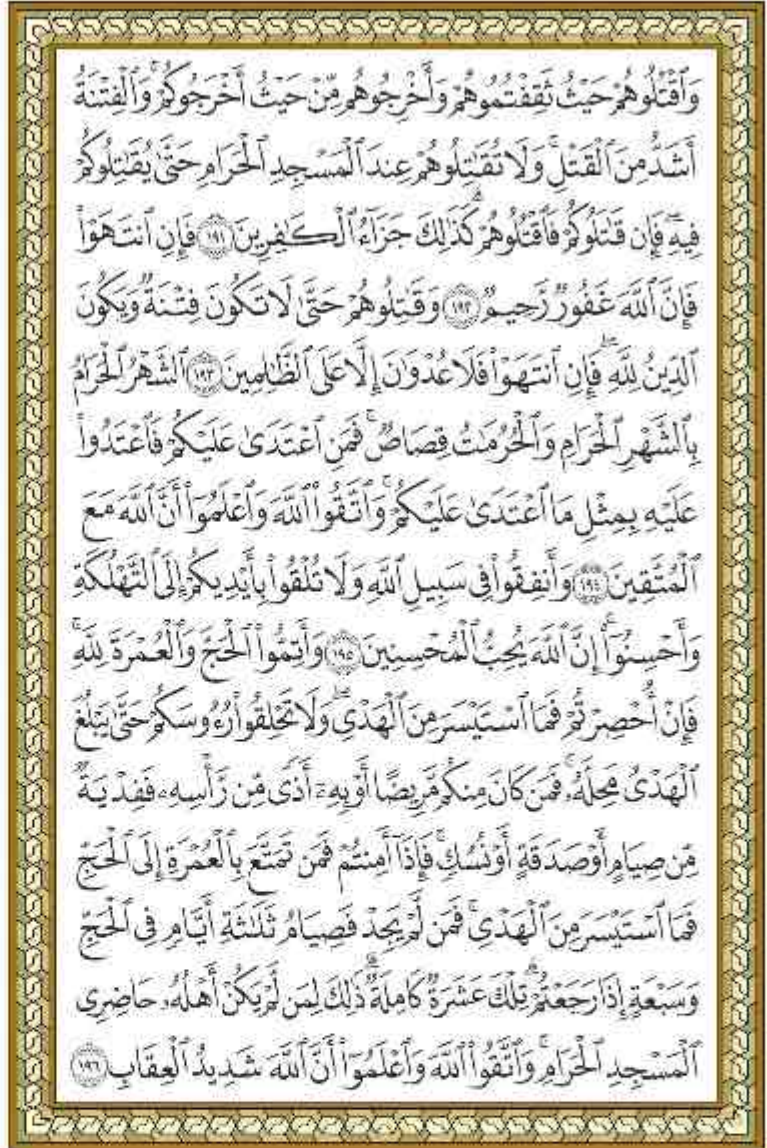 وَٱقْتُلُوهُمْ حَيْثُ ثَقِفْتُمُوهُمْ وَأَخْرِجُوهُم مِّنْ حَيْثُ أَخْرَجُوكُمْ ۚ وَٱلْفِتْنَةُ
أَشَدُّ مِنَ ٱلْقَتْلِ ۚ وَلَا تُقَٰتِلُوهُمْ عِندَ ٱلْمَسْجِدِ ٱلْحَرَامِ حَتَّىٰ يُقَٰتِلُوكُمْ
فِيهِ ۖ فَإِن قَٰتَلُوكُمْ فَٱقْتُلُوهُمْ ۗ كَذَٰلِكَ جَزَآءُ ٱلْكَٰفِرِينَ ١٩١ فَإِنِ ٱنتَهَوْا۟
فَإِنَّ ٱللَّهَ غَفُورٌ رَّحِيمٌ ١٩٢ وَقَٰتِلُوهُمْ حَتَّىٰ لَا تَكُونَ فِتْنَةٌ وَيَكُونَ
ٱلدِّينُ لِلَّهِ ۖ فَإِنِ ٱنتَهَوْا۟ فَلَا عُدْوَٰنَ إِلَّا عَلَى ٱلظَّٰلِمِينَ ١٩٣ ٱلشَّهْرُ ٱلْحَرَامُ
بِٱلشَّهْرِ ٱلْحَرَامِ وَٱلْحُرُمَٰتُ قِصَاصٌ ۚ فَمَنِ ٱعْتَدَىٰ عَلَيْكُمْ فَٱعْتَدُوا۟
عَلَيْهِ بِمِثْلِ مَا ٱعْتَدَىٰ عَلَيْكُمْ ۚ وَٱتَّقُوا۟ ٱللَّهَ وَٱعْلَمُوٓا۟ أَنَّ ٱللَّهَ مَعَ
ٱلْمُتَّقِينَ ١٩٤ وَأَنفِقُوا۟ فِى سَبِيلِ ٱللَّهِ وَلَا تُلْقُوا۟ بِأَيْدِيكُمْ إِلَى ٱلتَّهْلُكَةِ
وَأَحْسِنُوٓا۟ ۛ إِنَّ ٱللَّهَ يُحِبُّ ٱلْمُحْسِنِينَ ١٩٥ وَأَتِمُّوا۟ ٱلْحَجَّ وَٱلْعُمْرَةَ لِلَّهِ ۚ
فَإِنْ أُحْصِرْتُمْ فَمَا ٱسْتَيْسَرَ مِنَ ٱلْهَدْىِ ۖ وَلَا تَحْلِقُوا۟ رُءُوسَكُمْ حَتَّىٰ يَبْلُغَ
ٱلْهَدْىُ مَحِلَّهُۥ ۚ فَمَن كَانَ مِنكُم مَّرِيضًا أَوْ بِهِۦٓ أَذًى مِّن رَّأْسِهِۦ فَفِدْيَةٌ
مِّن صِيَامٍ أَوْ صَدَقَةٍ أَوْ نُسُكٍ ۚ فَإِذَآ أَمِنتُمْ فَمَن تَمَتَّعَ بِٱلْعُمْرَةِ إِلَى ٱلْحَجِّ
فَمَا ٱسْتَيْسَرَ مِنَ ٱلْهَدْىِ ۚ فَمَن لَّمْ يَجِدْ فَصِيَامُ ثَلَٰثَةِ أَيَّامٍ فِى ٱلْحَجِّ
وَسَبْعَةٍ إِذَا رَجَعْتُمْ ۗ تِلْكَ عَشَرَةٌ كَامِلَةٌ ۗ ذَٰلِكَ لِمَن لَّمْ يَكُنْ أَهْلُهُۥ حَاضِرِى
ٱلْمَسْجِدِ ٱلْحَرَامِ ۚ وَٱتَّقُوا۟ ٱللَّهَ وَٱعْلَمُوٓا۟ أَنَّ ٱللَّهَ شَدِيدُ ٱلْعِقَابِ ١٩٦